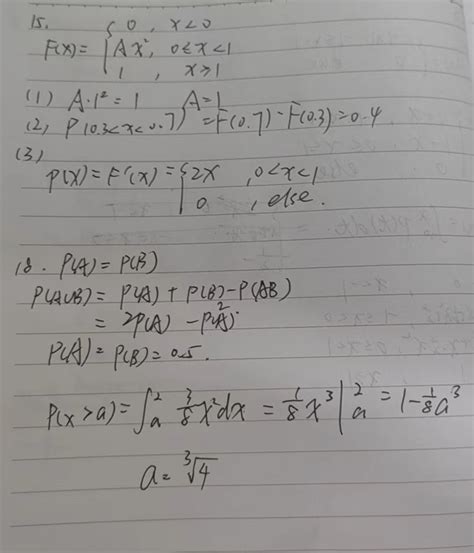 15.
F(x) = { 0, x<0
Ax², 0≤x<1
1, x≥1
(1) A·1²=1 A=1
(2) P(0.3<x<0.7) = F(0.7) - F(0.3) = 0.4
(3)
P(x) = F'(x) = { 2x, 0<x<1
0, else.
18. P(A) = P(B)
P(A∪B) = P(A) + P(B) - P(AB)
= 2P(A) - P(A)²
P(A) = P(B) = 0.5.
P(x>a) = ∫ₐ² 3/8 x² dx = 1/8 x³ |ₐ² = 1 - 1/8 a³
a = ³√4